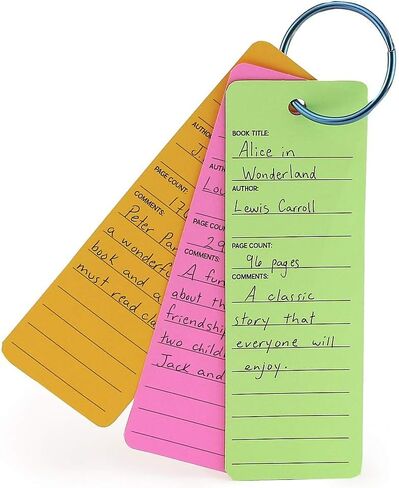 BOOK TITLE:
Alice in
Wonderland
AUTHOR:
Lewis Carroll
PAGE COUNT:
96 pages
COMMENTS:
A classic
story that
everyone will
enjoy.
AUTHO
Lou
PAGE COU
29
COMMENTS:
A fun
about th
friendship
two child
Jack and
AUTHO
J
PAGE COUNT:
COMMENTS:
Peter Pan
a wonderf
book and a
must read cla